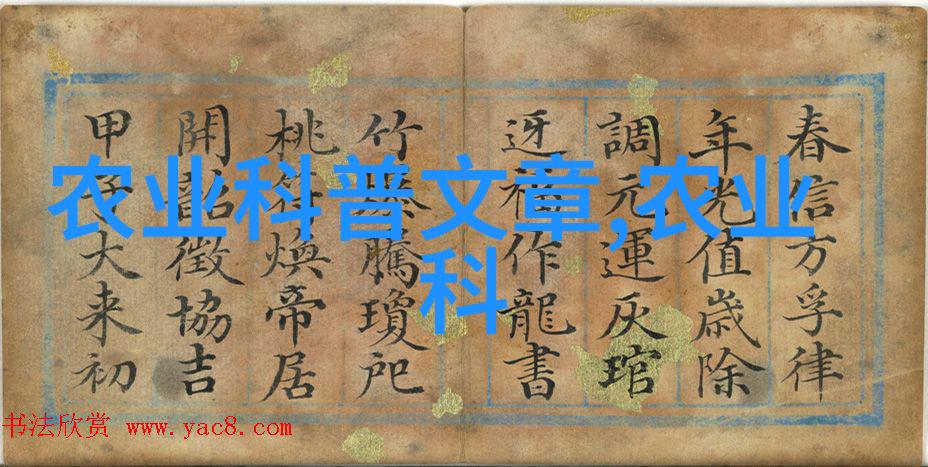 春信方孚律
年光值歲除
調元運灰琯
迓福作龍書
竹騰瓊
桃符煥帝居
開韶徵協吉
甲子大来初
农业科普文章,农业
科
书法欣赏 www.yac8.com